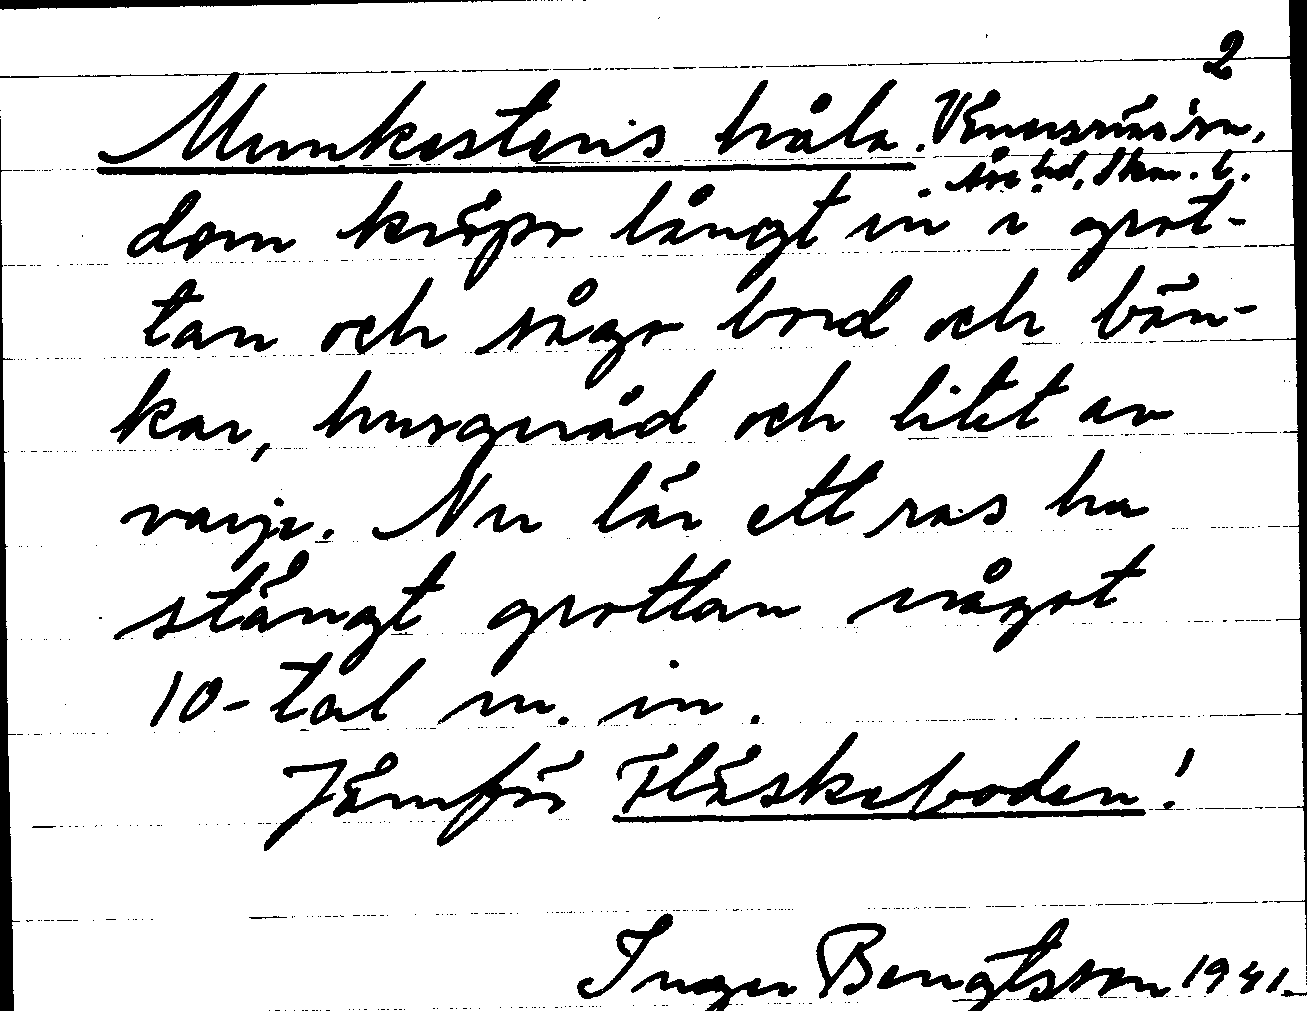 2
Munkestens håla. Vänersnäs sn,
Åse hd, Skar. l.
dom kröpo långt in i grot-
tan och sågo bord och bän-
kar, husgeråd och litet av
varje. Nu lär ett ras ha
stängt grottan något
10-tal m. in.
Jämför Fläskeboden!
Inger Bengtsson 1941.